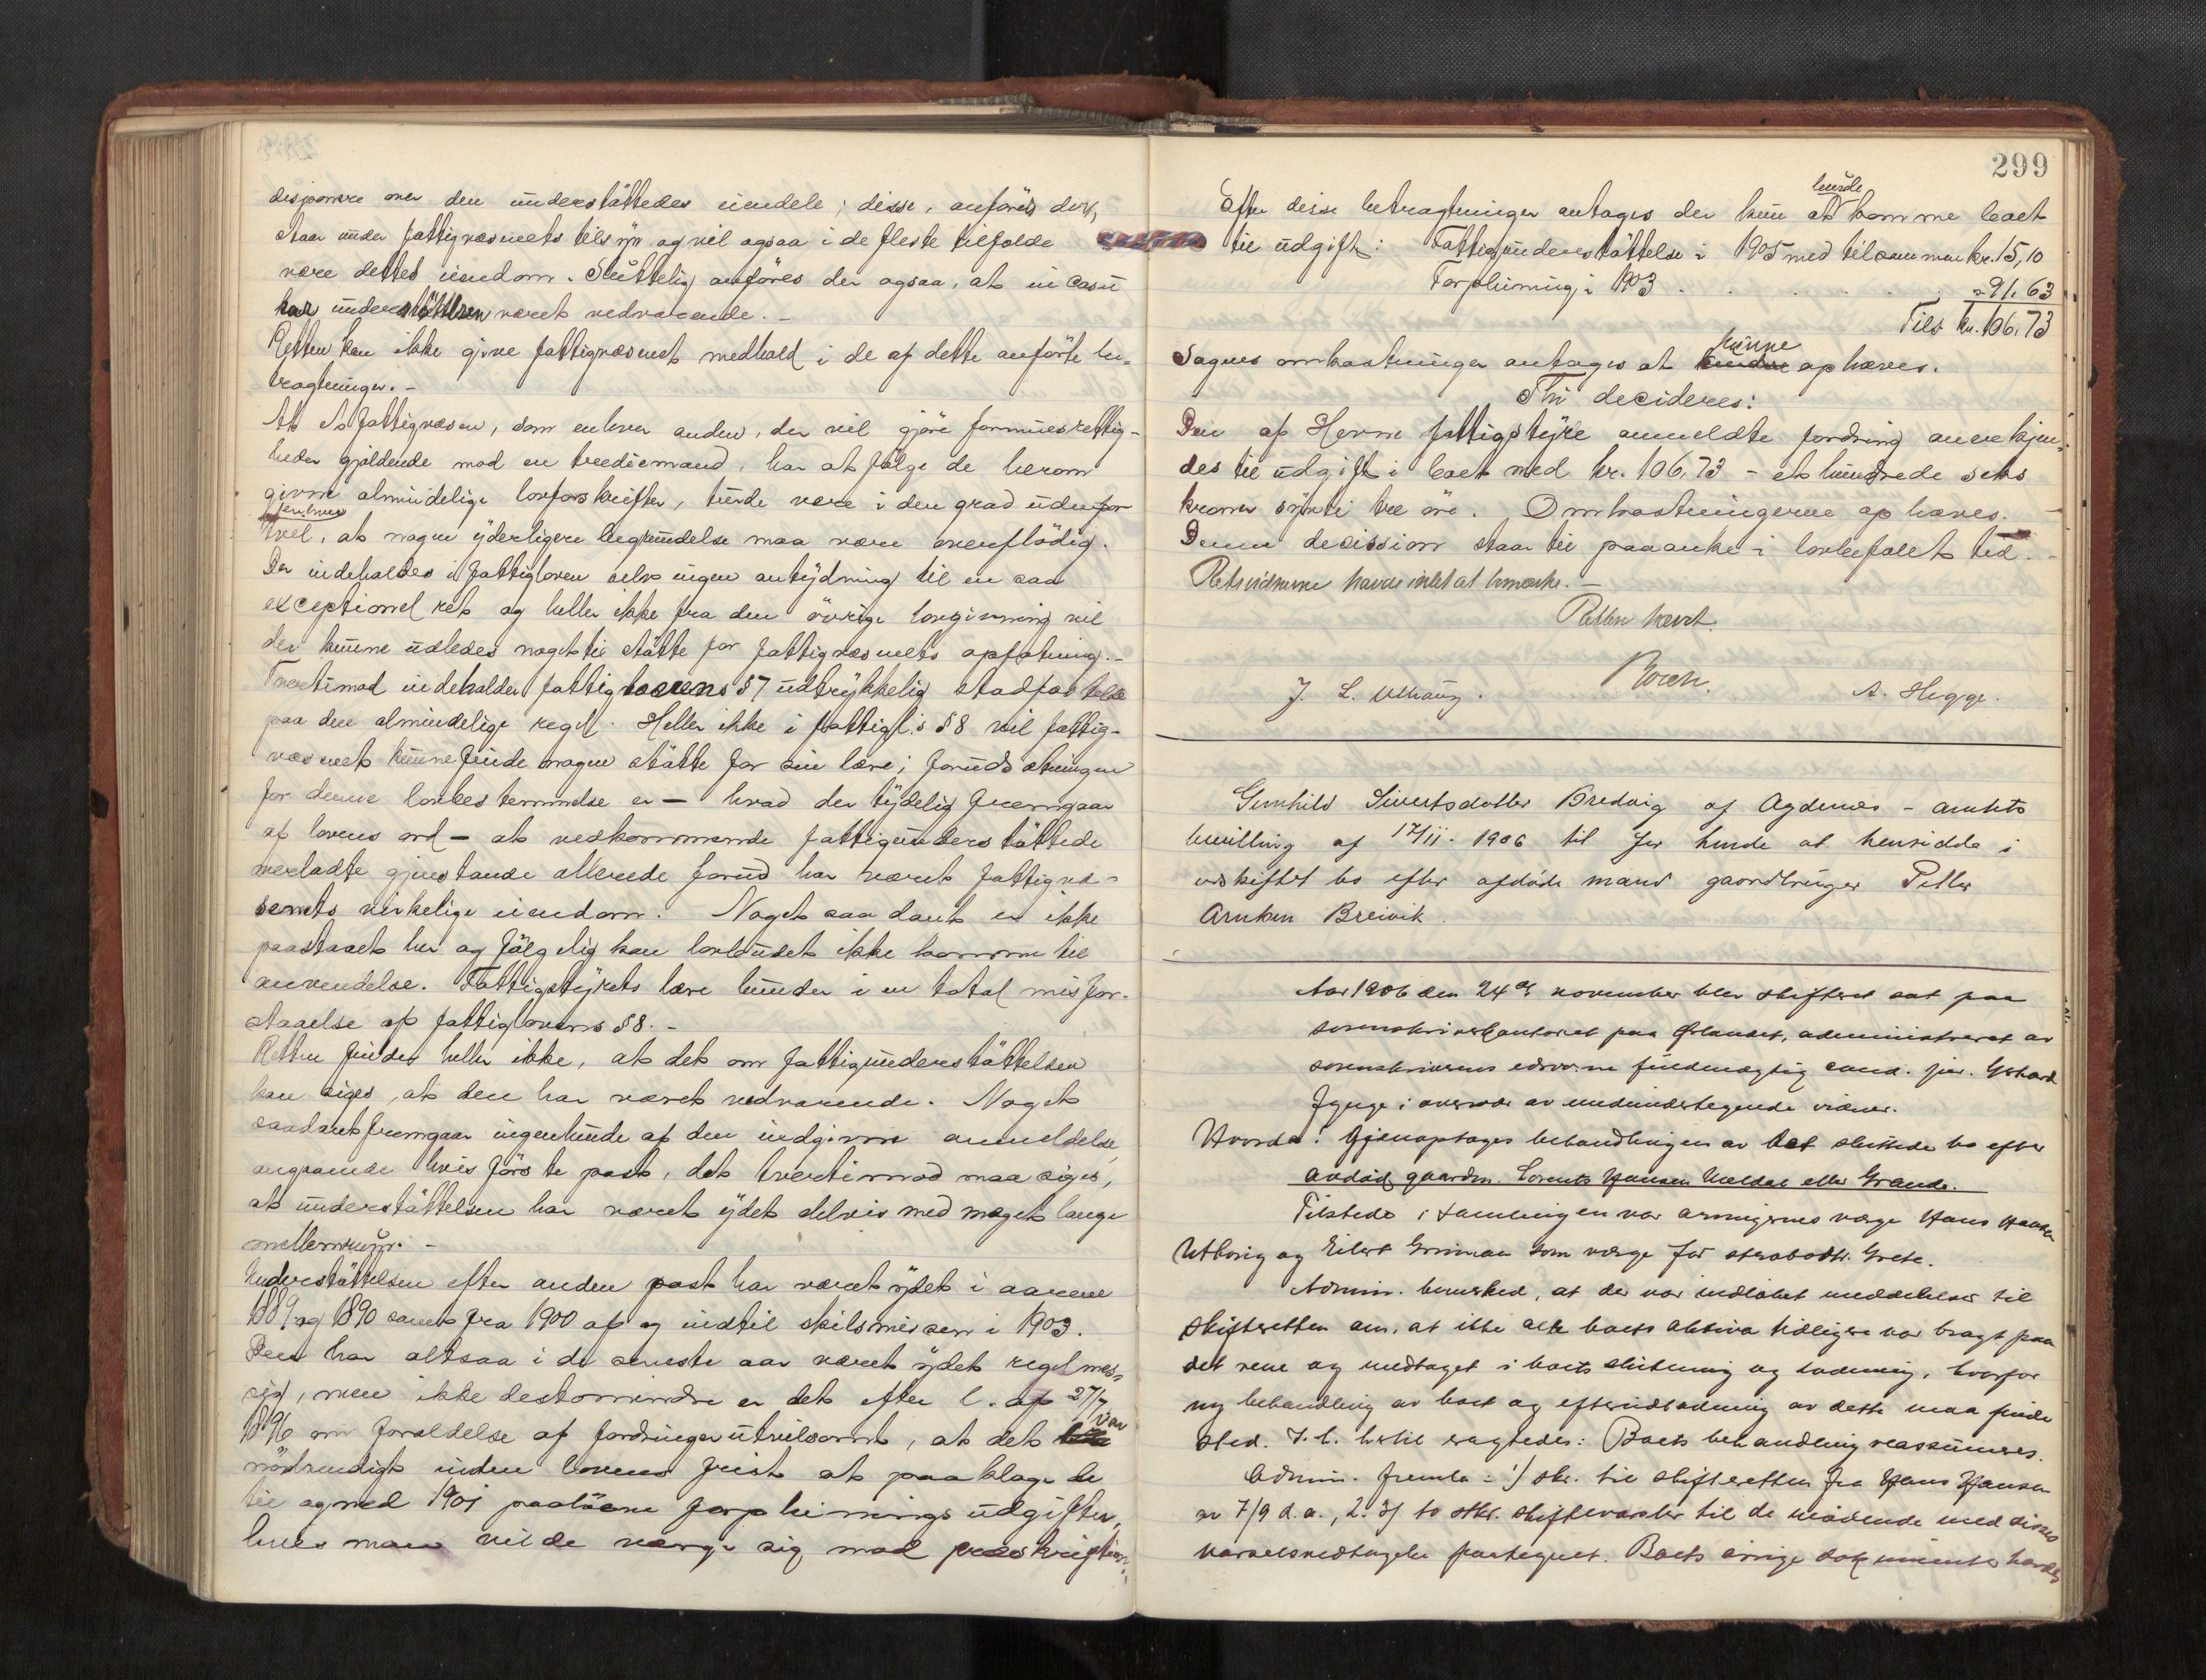 disponere over den understöttedes eiendele; disse, anföres der,
staar under fattigvæsenets tilsyn og vil ogsaa i de fleste tilfælde
være dettes eiendom. Sluttelig anföres der ogsaa, at in casu
har understöttelsen været vedvarende. –
Retten kan ikke give fattigvæsenet medhold i de af dette anförte be-
tragtninger. –
At et fattigvæsen, som enhver anden, der vil gjöre formuesrettig-
heder gjældende mod en trediemand, har at fölge de herom
givne almindelige lovforskrifter, turde være i den grad udenfor
tvil, at nogen yderligere begrundelse maa være overflödig.
Der indeholdes i fattigloven selv ingen antydning til en saa
exceptionel ret og heller ikke fra den övrige lovgivning vil
der kunne udledes noget til stötte for fattigvæsenets opfatning. –
Tvertimod indeholder fattiglovens § 7 udtrykkelig stadfæstelse
paa den almindelige regel. Heller ikke i fattigl.s § 8 vil fattig-
væsenet kunne finde nogen stötte for sin lære; forudsætningen
for denne lovbestemmelse er – hvad der tydelig fremgaar
af lovens ord – at vedkommende fattigunderstöttede
overladte gjenstande allerede forud har været fattigvæ-
senets virkelige eiendom. Noget saadant er ikke
paastaaet her og fölgelig kan lovbudet ikke komme til
anvendelse. Fattigstyrets lære bunder i en total misfor-
staaelse af fattiglovens § 8. –
Retten finder heller ikke, at det om fattigunderstöttelsen
kan siges, at den har været vedvarende. Noget
saadant fremgaar ingenlunde af den indgivne anmeldelse,
angaaende hvis förste post, det tvertimod maa siges,
at understöttelsen har været ydet delvis med meget lange
mellemrum. –
Understöttelsen efter anden post har været ydet i aarene
1889 og 1890 samt fra 1900 af og indtil skilsmissen i 1903.
Den har altsaa i de seneste aar været ydet regelmæs-
sig, men ikke destomindre er det efter l. af 27/7
1896 om forældelse af fordringer utvilsomt, at det var
nödvendigt inden lovens frist at paaklage de
til og med 1901 paalöbne forpleinings udgifter,
hvis man vilde værge sig mod præskription.
299
Efter disse betragtninger antages der kun at burde komme boet
til udgift: Fattigunderstöttelse i 1905 med tilsammen kr. 15,10
Forpleining i 1903 . . . . . . " 91,63
Tils. kr. 106,73
Sagens omkostninger antages at kunne ophæves.
Thi decideres:
Den af Hevne fattigstyre anmeldte fordring anerkjen-
des til udgift i boet med kr. 106,73 – et hundrede seks
kroner sytti tre öre. Omkostningerne ophæves. –
Denne decission staar til paaanke i lovbefalet tid. –
Retsvidnerne havde intet at bemærke. –
Retten hævet.
J. L. Uthaug. Roich. A. Hegge.
Gunhild Sivertsdatter Bredvig af Agdenes – amtets
bevilling af 17/11 - 1906 til for hende at hensidde i
uskiftet bo efter afdöde mand gaardbruger Petter
Arntsen Breivik.
Aar 1906 den 24de november blev skifteret sat paa
sorenskriverkontoret paa Ørlandet, administreret av
sorenskriverens edsvorne fuldmægtig cand. jur.
i overvær av medundertegnede vidner.
Hvorda: Gjenoptages behandlingen av det sluttede bo efter
avdød gaardm. Lorents Hansen Meldal eller Grande.
Tilstede i samlingen var arvingernes værge Hans Hansen
Uthaug og Eilert Grinnaa som værge for Grete.
Admin. bemerked, at der var indløbet meddelelse til
skifteretten om, at ikke alle boets aktiva tidligere var bragt paa
det rene og medtaget i boets slutning og lodning, hvorfor
ny behandling av boet og efterudlodning av dette maa finde
sted. I h. hertil eragtedes: Boets behandling reassumeres.
Admin. fremla: 1) skr. til skifteretten fra Hans Hansen
av 7/9 d.a., 2. 3) to stkr. skiftevarsler til de møtende med disses
varselsvedtagelse paategnet. Boets övrige dokumenter havdes